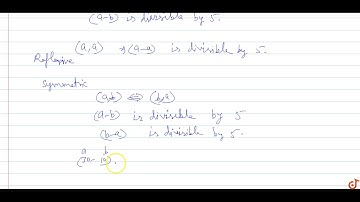 (a-b) is divisible by 5.
(a,a) → (a-a) is divisible by 5.
Reflexive
Symmetric
(a,b) ⇔ (b,a)
(a-b) is divisible by 5
(b-a) is divisible by 5.
a b